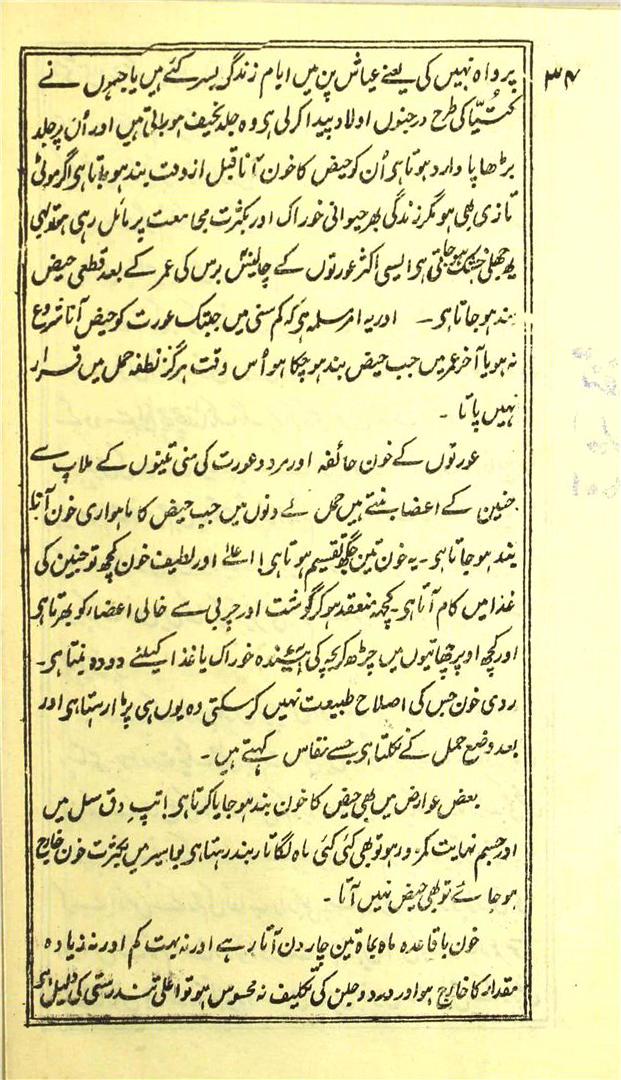 ۳۴
پرواہ نہیں کی یعنے عیاش پن میں ایام زندگی بسر کئے ہیں یا جنہوں نے
کتیّا کی طرح درجنوں اولاد پیدا کر لی ہی وہ جلد نحیف ہو جاتی ہیں اور اُن پر جلد
بڑھاپا وارد ہوتا ہی اُن کو حیض کا خون آنا قبل از وقت بند ہو جاتا ہی اگر موٹی
تازی بھی ہو مگر زندگی بھر حیوانی خوراک اور بکثرت مجامعت پر مائل رہی ہو تو بھی
یہ جھلی خشک ہو جاتی ہی ایسی اکثر عورتوں کے چالیس برس کی عمر کے بعد قطعی حیض
بند ہو جاتا ہی ۔ اور یہ امر مسلمہ ہی کہ کم سنی میں جبتک عورت کو حیض آنا شروع
نہ ہو یا آخر عمر میں جب حیض بند ہو چکا ہو اُس وقت ہرگز نطفہ حمل میں قرار
نہیں پاتا ۔
عورتوں کے خون حائفہ اور مرد و عورت کی منی تینوں کے ملاپ سے
جنین کے اعضا بنتے ہیں حمل کے دنوں میں جب حیض کا ماہواری خون آنا
بند ہو جاتا ہی ۔ یہ خون تین جگہ تقسیم ہوتا ہی اعلےٰ اور لطیف خون کچھ تو جنین کی
غذا میں کام آتا ہی ۔ کچھ منعقد ہو کر گوشت اور چربی سے خالی اعضاء کو بھرتا ہی
اور کچھ اوپر چھاتیوں میں چڑھ کر بچہ کی آئیندہ خوراک یا غذا کیلئے دودہ بنتا ہی ۔
ردی خون جس کی اصلاح طبیعت نہیں کر سکتی وہ یوں ہی پڑا رہتا ہی اور
بعد وضع حمل کے نکلتا ہی جسے نفاس کہتے ہیں ۔
بعض عوارض میں بھی حیض کا خون بند ہو جایا کرتا ہی تپ دق سل میں
اور جسم نہایت کمزور ہو تو بھی کئی کئی ماہ لگاتار بند رہتا ہی بواسیر میں بکثرت خون خارج
ہو جائے تو بھی حیض نہیں آتا ۔
خون باقاعدہ ماہ بماہ تین چار دن آتا رہے اور نہ بہت کم اور نہ زیادہ
مقدار کا خارج ہو اور درد و جلن کی تکلیف نہ محسوس ہو تو اعلیٰ تندرستی کی دلیل ہی